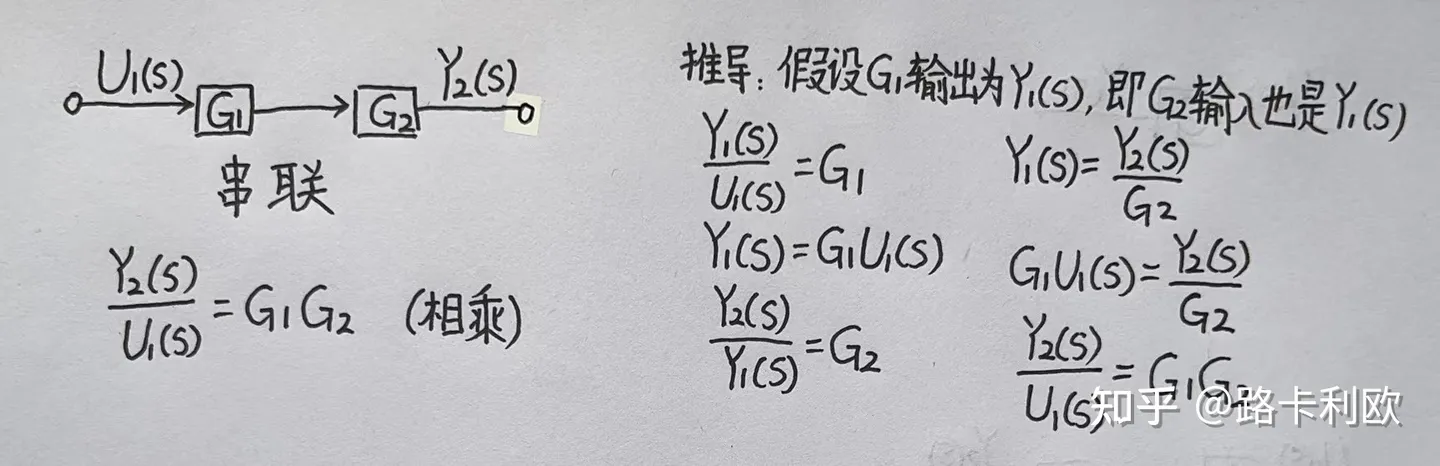 U₁(s) G₁ G₂ Y₂(s)
串联
Y₂(s)/U₁(s)=G₁G₂ (相乘)
推导：假设G₁输出为Y₁(s),即G₂输入也是Y₁(s)
Y₁(s)/U₁(s)=G₁
Y₁(s)=G₁U₁(s)
Y₂(s)/Y₁(s)=G₂
Y₁(s)=Y₂(s)/G₂
G₁U₁(s)=Y₂(s)/G₂
Y₂(s)/U₁(s)=G₁G₂
知乎 @路卡利欧